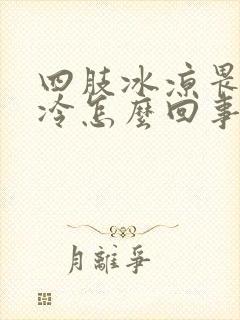 四肢冰凉畏
冷怎麼回事
月離爭